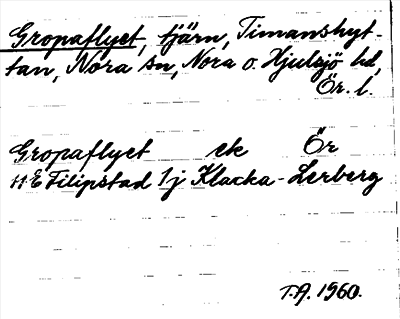 Gropaflyet, tjärn, Timanshyt-
tan, Nora sn, Nora o. Hjulsjö hd,
Ör. l.
Gropaflyet ek Ör
11 E Filipstad 1 j Klacka-Lerberg
T.A. 1960.